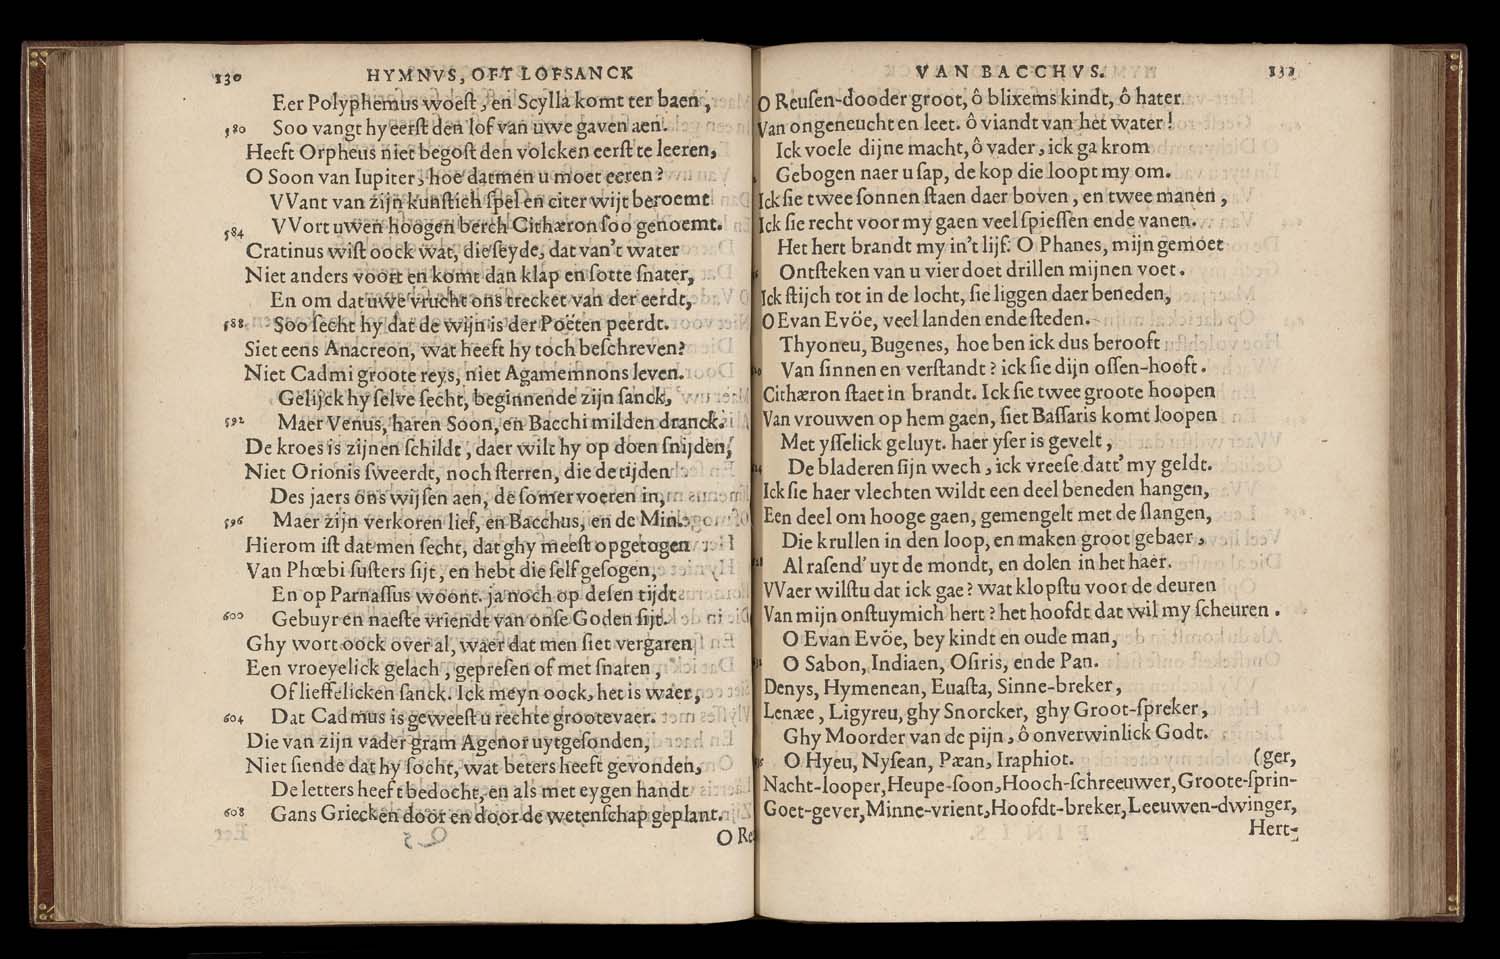 130 HYMNVS, OFT LOFSANCK
Eer Polyphemus woeſt, en Scylla komt ter baen,
580 Soo vangt hy eerſt den lof van uwe gaven aen.
Heeft Orpheus niet begoſt den volcken eerſt te leeren,
O Soon van Iupiter, hoe datmen u moet eeren?
VVant van zijn kunſtich ſpel en citer wijt beroemt
584 VVort uwen hoogen berch Cithæron ſoo genoemt.
Cratinus wiſt oock wat, die ſeyde, dat van't water
Niet anders voort en komt dan klap en ſotte ſnater,
En om dat uwe vrucht ons trecket van der eerdt,
588 Soo ſecht hy dat de wijn is der Poëten peerdt.
Siet eens Anacreon, wat heeft hy toch beſchreven?
Niet Cadmi groote reys, niet Agamemnons leven.
Gelijck hy ſelve ſecht, beginnende zijn ſanck,
592 Maer Venus, haren Soon, en Bacchi milden dranck.
De kroes is zijnen ſchildt, daer wilt hy op doen ſnijden,
Niet Orionis ſweerdt, noch ſterren, die de tijden
Des jaers ons wijſen aen, de ſomer voeren in,
596 Maer zijn verkoren lief, en Bacchus, en de Min.
Hierom iſt dat men ſecht, dat ghy meeſt opgetogen
Van Phœbi ſuſters ſijt, en hebt die ſelf geſogen,
En op Parnaſſus woont. ja noch op deſen tijdt
600 Gebuyr en naeſte vriendt van onſe Goden ſijt.
Ghy wort oock over al, waer dat men ſiet vergaren
Een vroeyelick gelach, gepreſen of met ſnaren,
Of lieffelicken ſanck. Ick meyn oock, het is waer,
604 Dat Cadmus is geweeſt u rechte grootevaer.
Die van zijn vader gram Agenor uytgeſonden,
Niet ſiende dat hy ſocht, wat beters heeft gevonden,
De letters heeft bedocht, en als met eygen handt
608 Gans Griecken door en door de wetenſchap geplant.
O Re
VAN BACCHVS. 131
O Reuſen-dooder groot, ô blixems kindt, ô hater
Van ongeneucht en leet. ô viandt van het water!
Ick voele dijne macht, ô vader, ick ga krom
Gebogen naer u ſap, de kop die loopt my om.
Ick ſie twee ſonnen ſtaen daer boven, en twee manen,
Ick ſie recht voor my gaen veel ſpieſſen ende vanen.
Het hert brandt my in't lijf. O Phanes, mijn gemoet
Ontſteken van u vier doet drillen mijnen voet.
Ick ſtijch tot in de locht, ſie liggen daer beneden,
O Evan Evöe, veel landen ende ſteden.
Thyoneu, Bugenes, hoe ben ick dus berooft
Van ſinnen en verſtandt? ick ſie dijn oſſen-hooft.
Cithæron ſtaet in brandt. Ick ſie twee groote hoopen
Van vrouwen op hem gaen, ſiet Baſſaris komt loopen
Met yſſelick geluyt. haer yſer is gevelt,
De bladeren ſijn wech, ick vreeſe datt' my geldt.
Ick ſie haer vlechten wildt een deel beneden hangen,
Een deel om hooge gaen, gemengelt met de ſlangen,
Die krullen in den loop, en maken groot gebaer,
Al raſend' uyt de mondt, en dolen in het haer.
VVaer wilſtu dat ick gae? wat klopſtu voor de deuren
Van mijn onſtuymich hert? het hoofdt dat wil my ſcheuren.
O Evan Evöe, bey kindt en oude man,
O Sabon, Indiaen, Oſiris, ende Pan.
Denys, Hymenean, Euaſta, Sinne-breker,
Lenæe, Ligyreu, ghy Snorcker, ghy Groot-ſpreker,
Ghy Moorder van de pijn, ô onverwinlick Godt.
O Hyeu, Nyſean, Pæan, Iraphiot. (ger,
Nacht-looper, Heupe-ſoon, Hooch-ſchreeuwer, Groote-ſprin-
Goet-gever, Minne-vrient, Hoofdt-breker, Leeuwen-dwinger,
Hert-